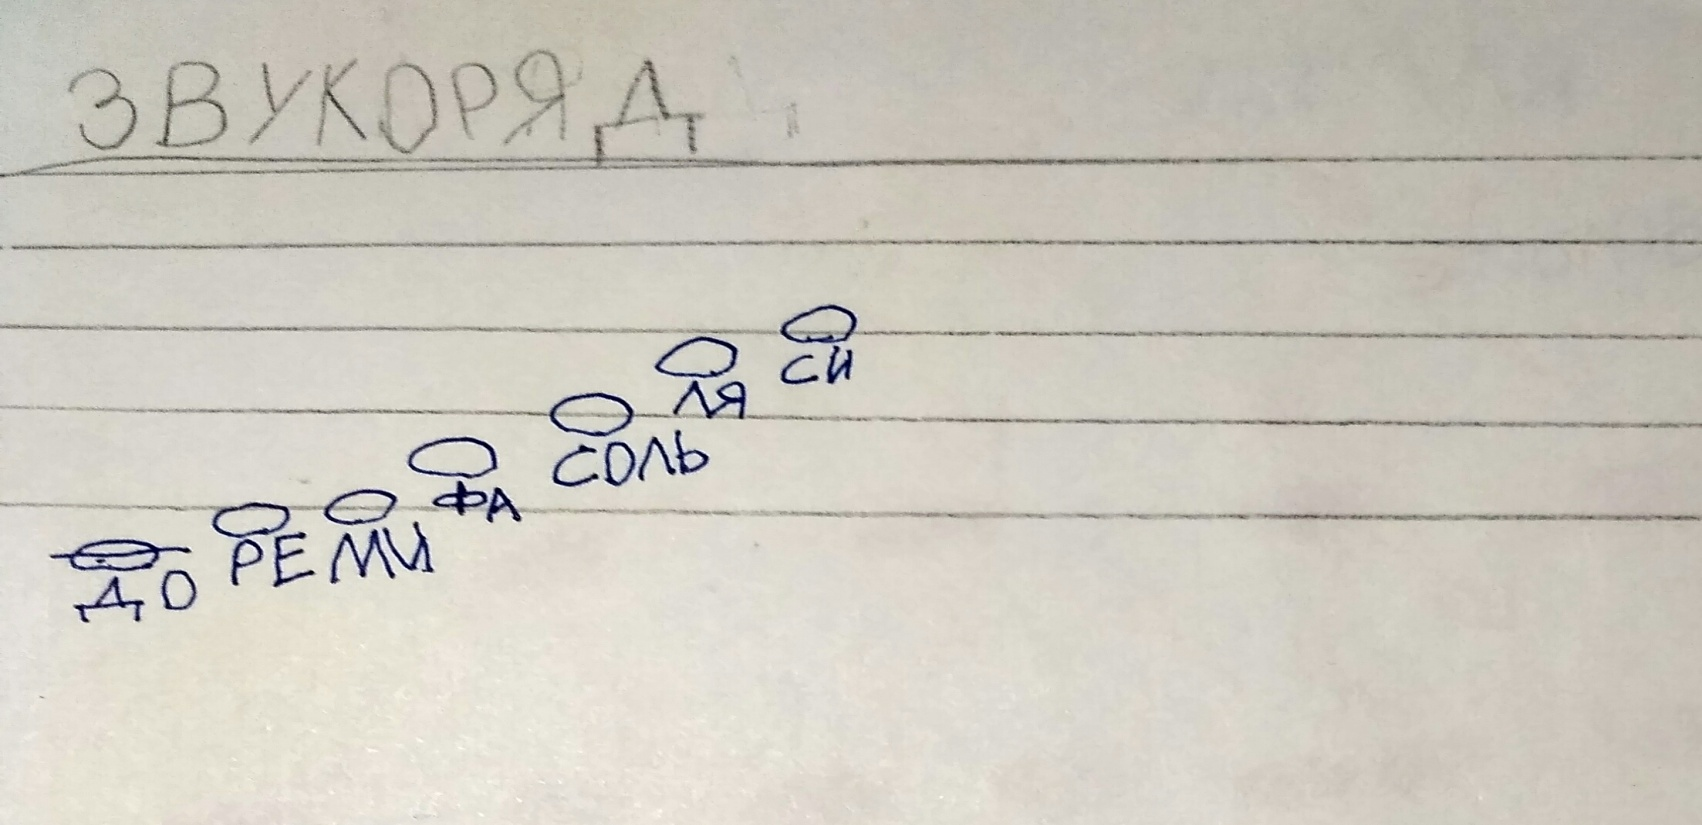 ЗВУКОРЯД
ДО РЕ МИ ФА СОЛЬ ЛЯ СИ